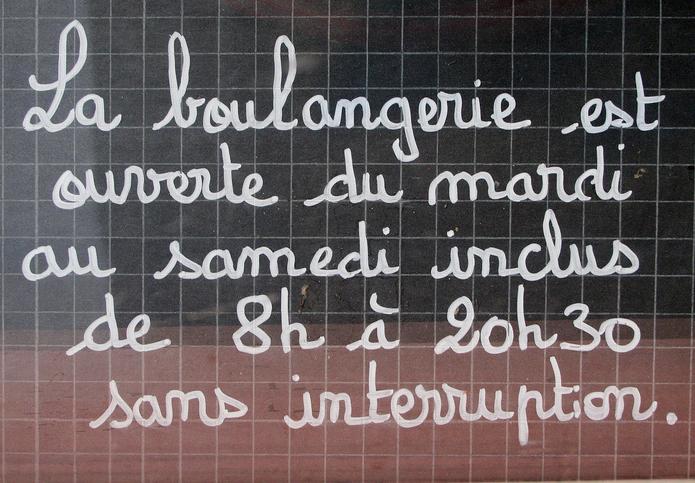 La boulangerie est
ouverte du mardi
au samedi inclus
de 8h à 20h30
sans interruption.